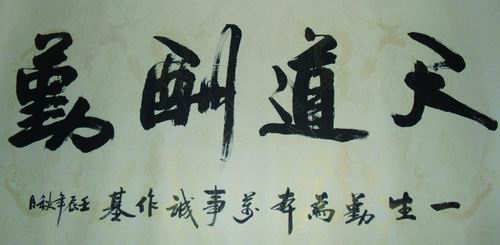 天道酬勤
一生勤為本萬事誠作基 壬辰年秋月